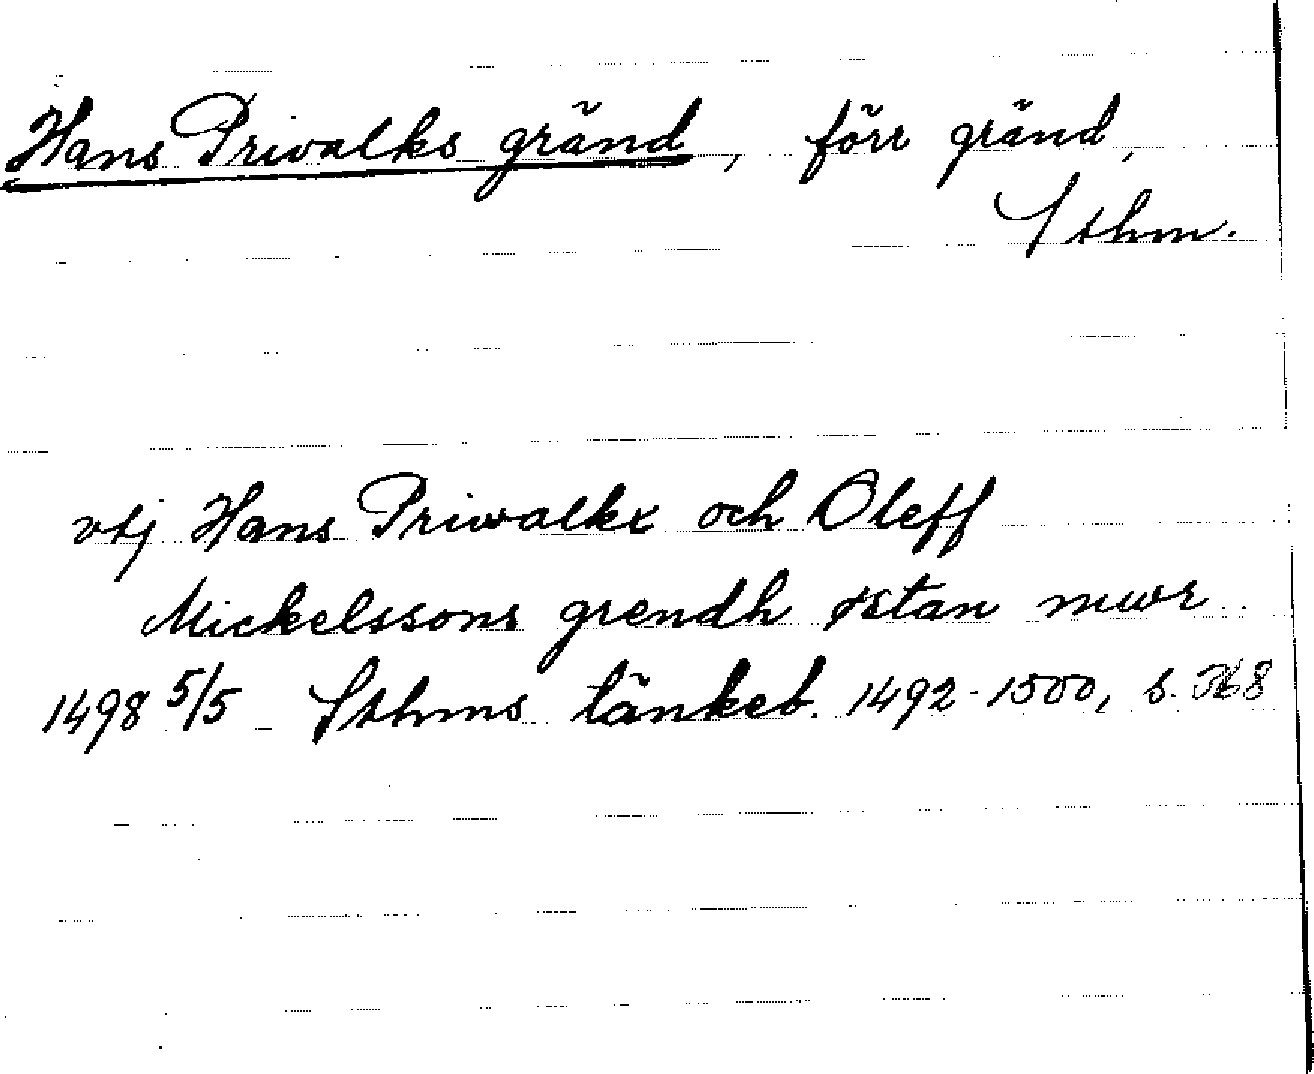 Hans Privalks gränd, förr gränd,
Sthm.
vtj Hans Priwalkx och Oleff
Mickelssons grendh østan mwr
1498 5/5 Sthms tänkeb. 1492-1500, s. 368